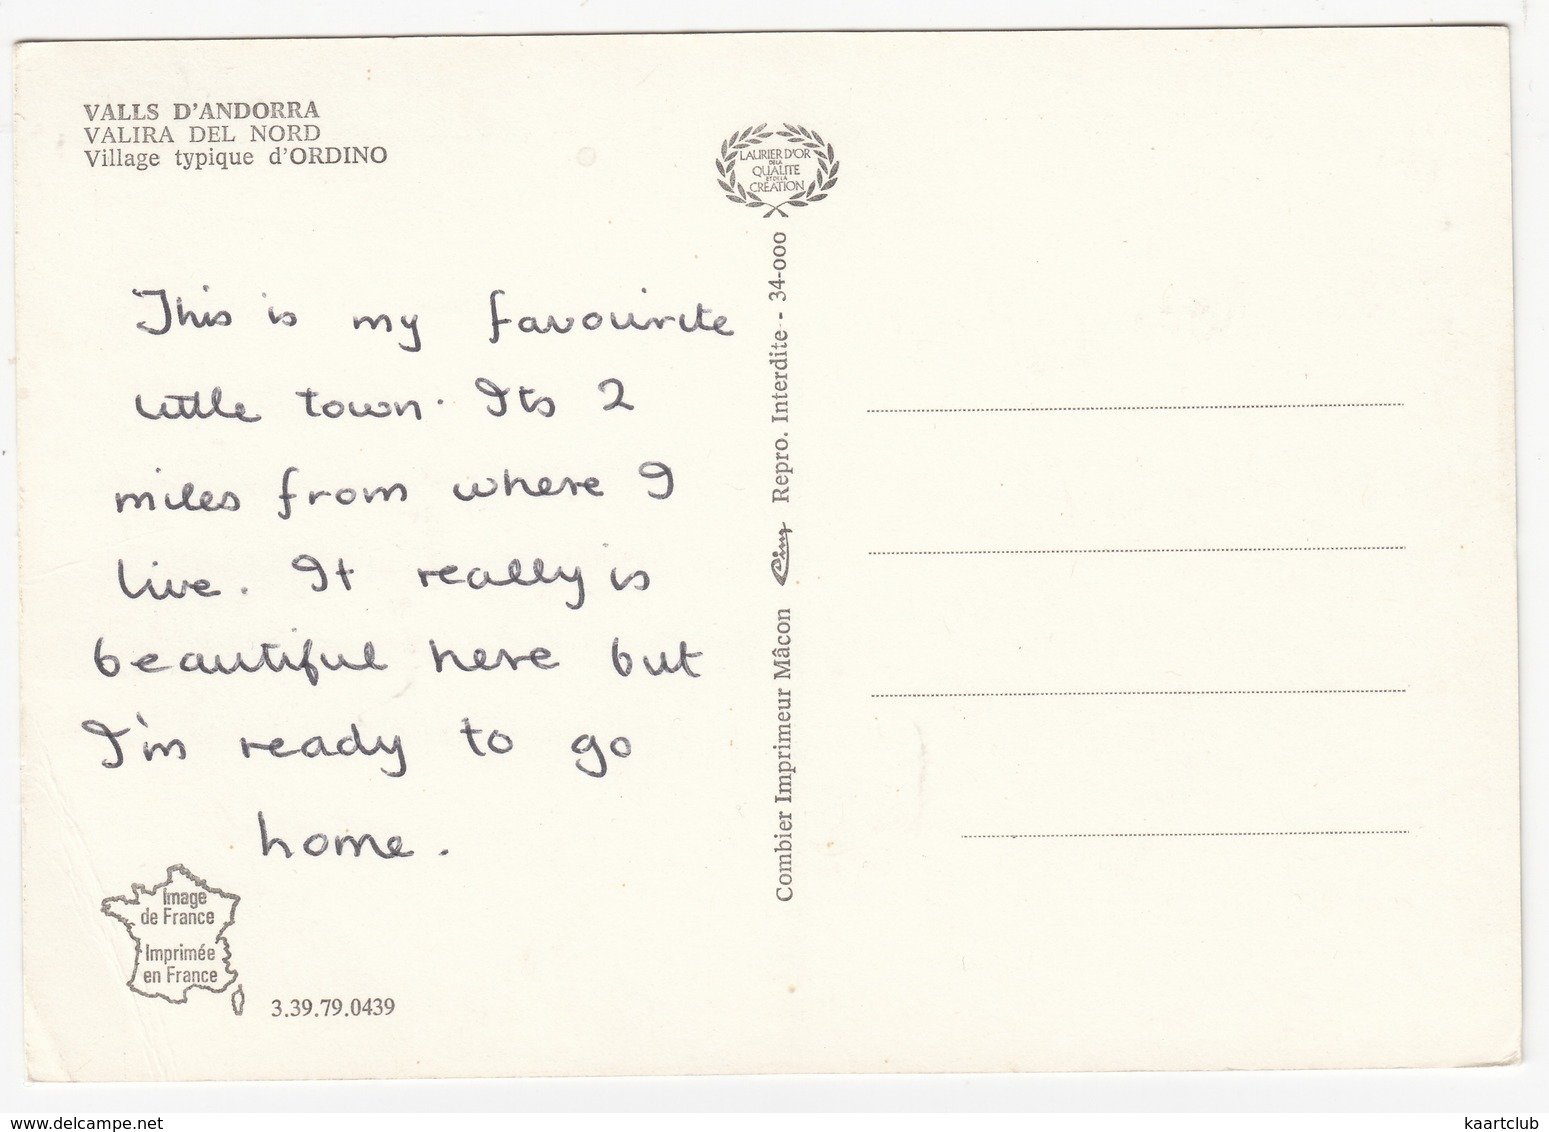 VALLS D'ANDORRA
VALIRA DEL NORD
Village typique d'ORDINO
This is my favourite
little town. Its 2
miles from where I
live. It really is
beautiful here but
I'm ready to go
home.
Image
de France
Imprimée
en France
3.39.79.0439
LAURIER D'OR
DE LA
QUALITE
ET DE LA
CREATION
Combier Imprimeur Mâcon Cim Repro. Interdite - 34-000
www.delcampe.net
kaartclub